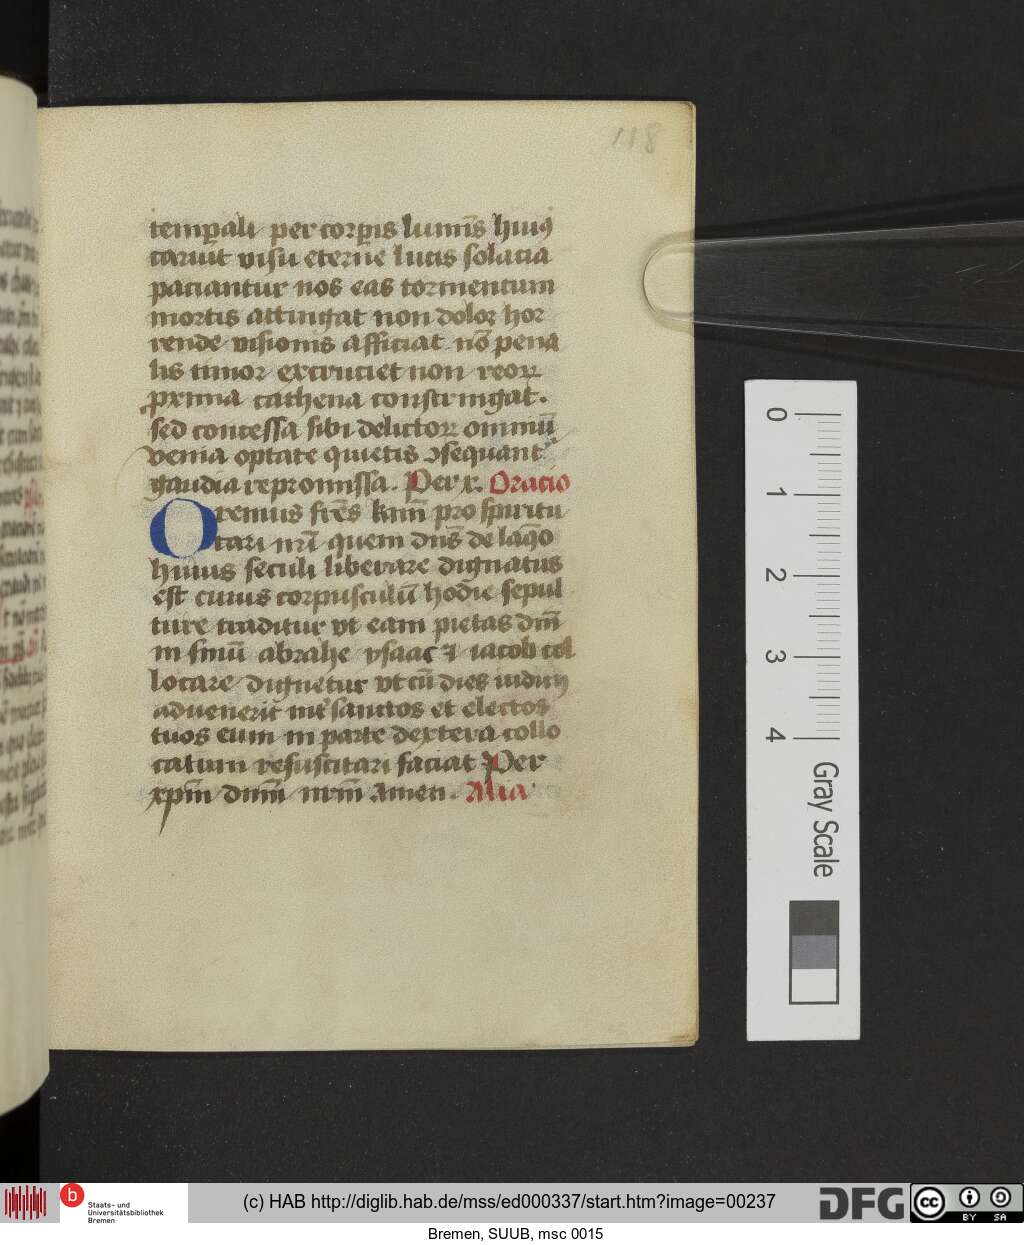 118
temꝑali per corꝑis lumīs huiꝯ
caruit visu eterne lucis solacia
paciantur nos eas tormentum
mortis attingat non doloꝛ hor
rende visionis afficiat nō pena
lis timoꝛ excruciet non reoꝝ
pxima cathena constringat.
sed concessa sibi delictoꝝ omniū
venia optate quietis ꝯsequant᷑
gaudia repromissa. Per x. Oracio
Oremus fr̄es km̄i pro spiritu
cari nr̄i quem dn̄s de laq̄o
huius seculi liberare dignatus
est cuius corpusculū hodie sepul
ture traditur vt eam pietas dn̄i
in sinū abrahe ysaac ⁊ iacob col
locare dignetur vt cū dies iudicij
aduenerit int̄ sanctos et electos
tuos eum in parte dextera collo
catum resuscitari faciat Per
xp̄m dn̄m nr̄m Amen. Alia
0
1
2
3
4
Gray Scale
b
Staats- und
Universitätsbibliothek
Bremen
(c) HAB http://diglib.hab.de/mss/ed000337/start.htm?image=00237
DFG
cc
BY SA
Bremen, SUUB, msc 0015